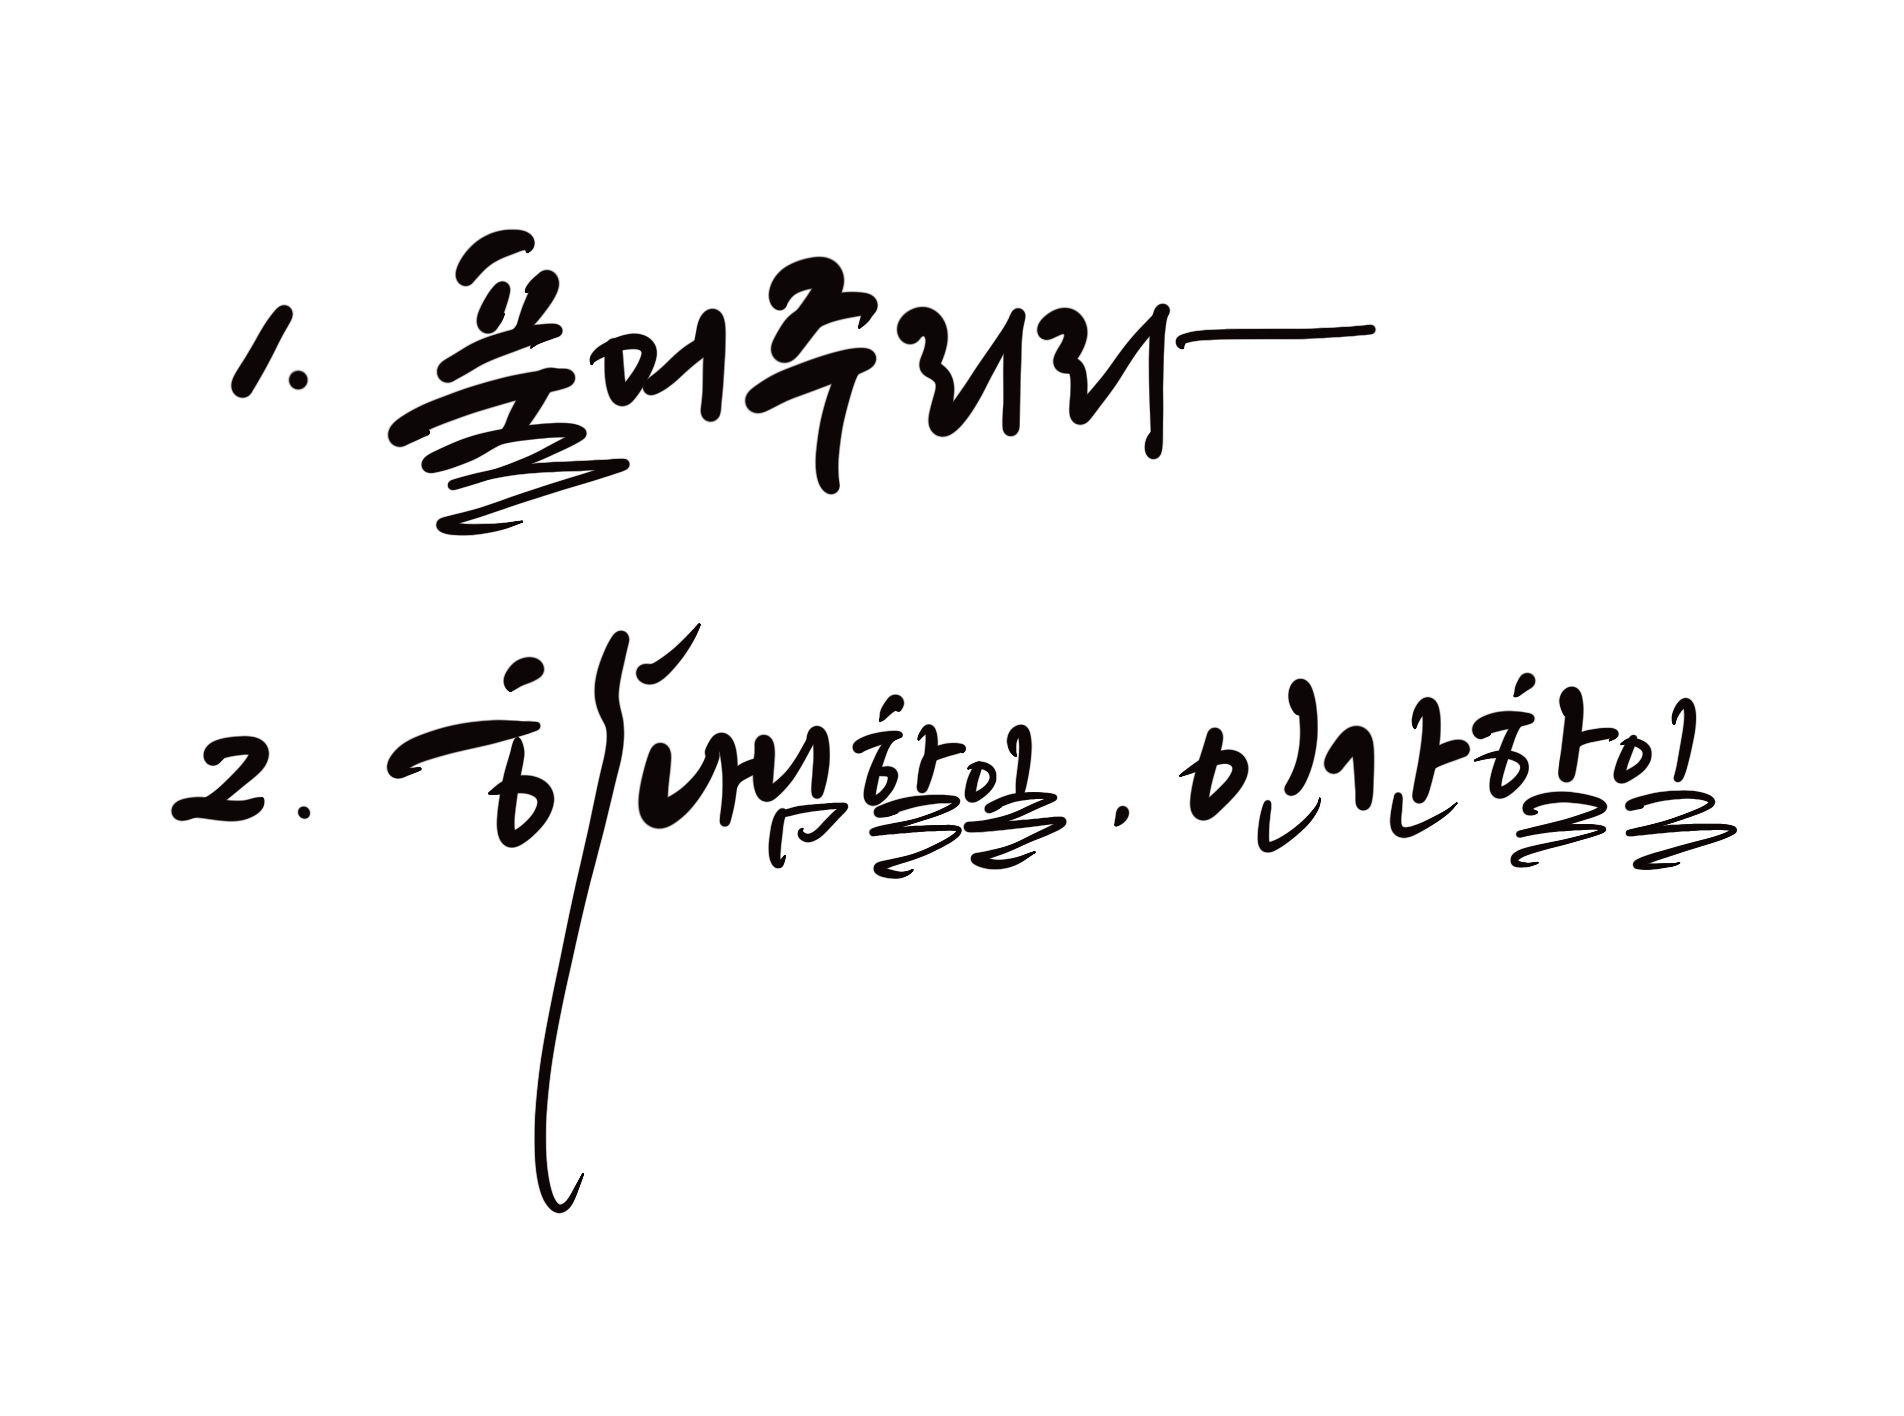 1. 풀어주리라
2. 하나님할일, 인간할일